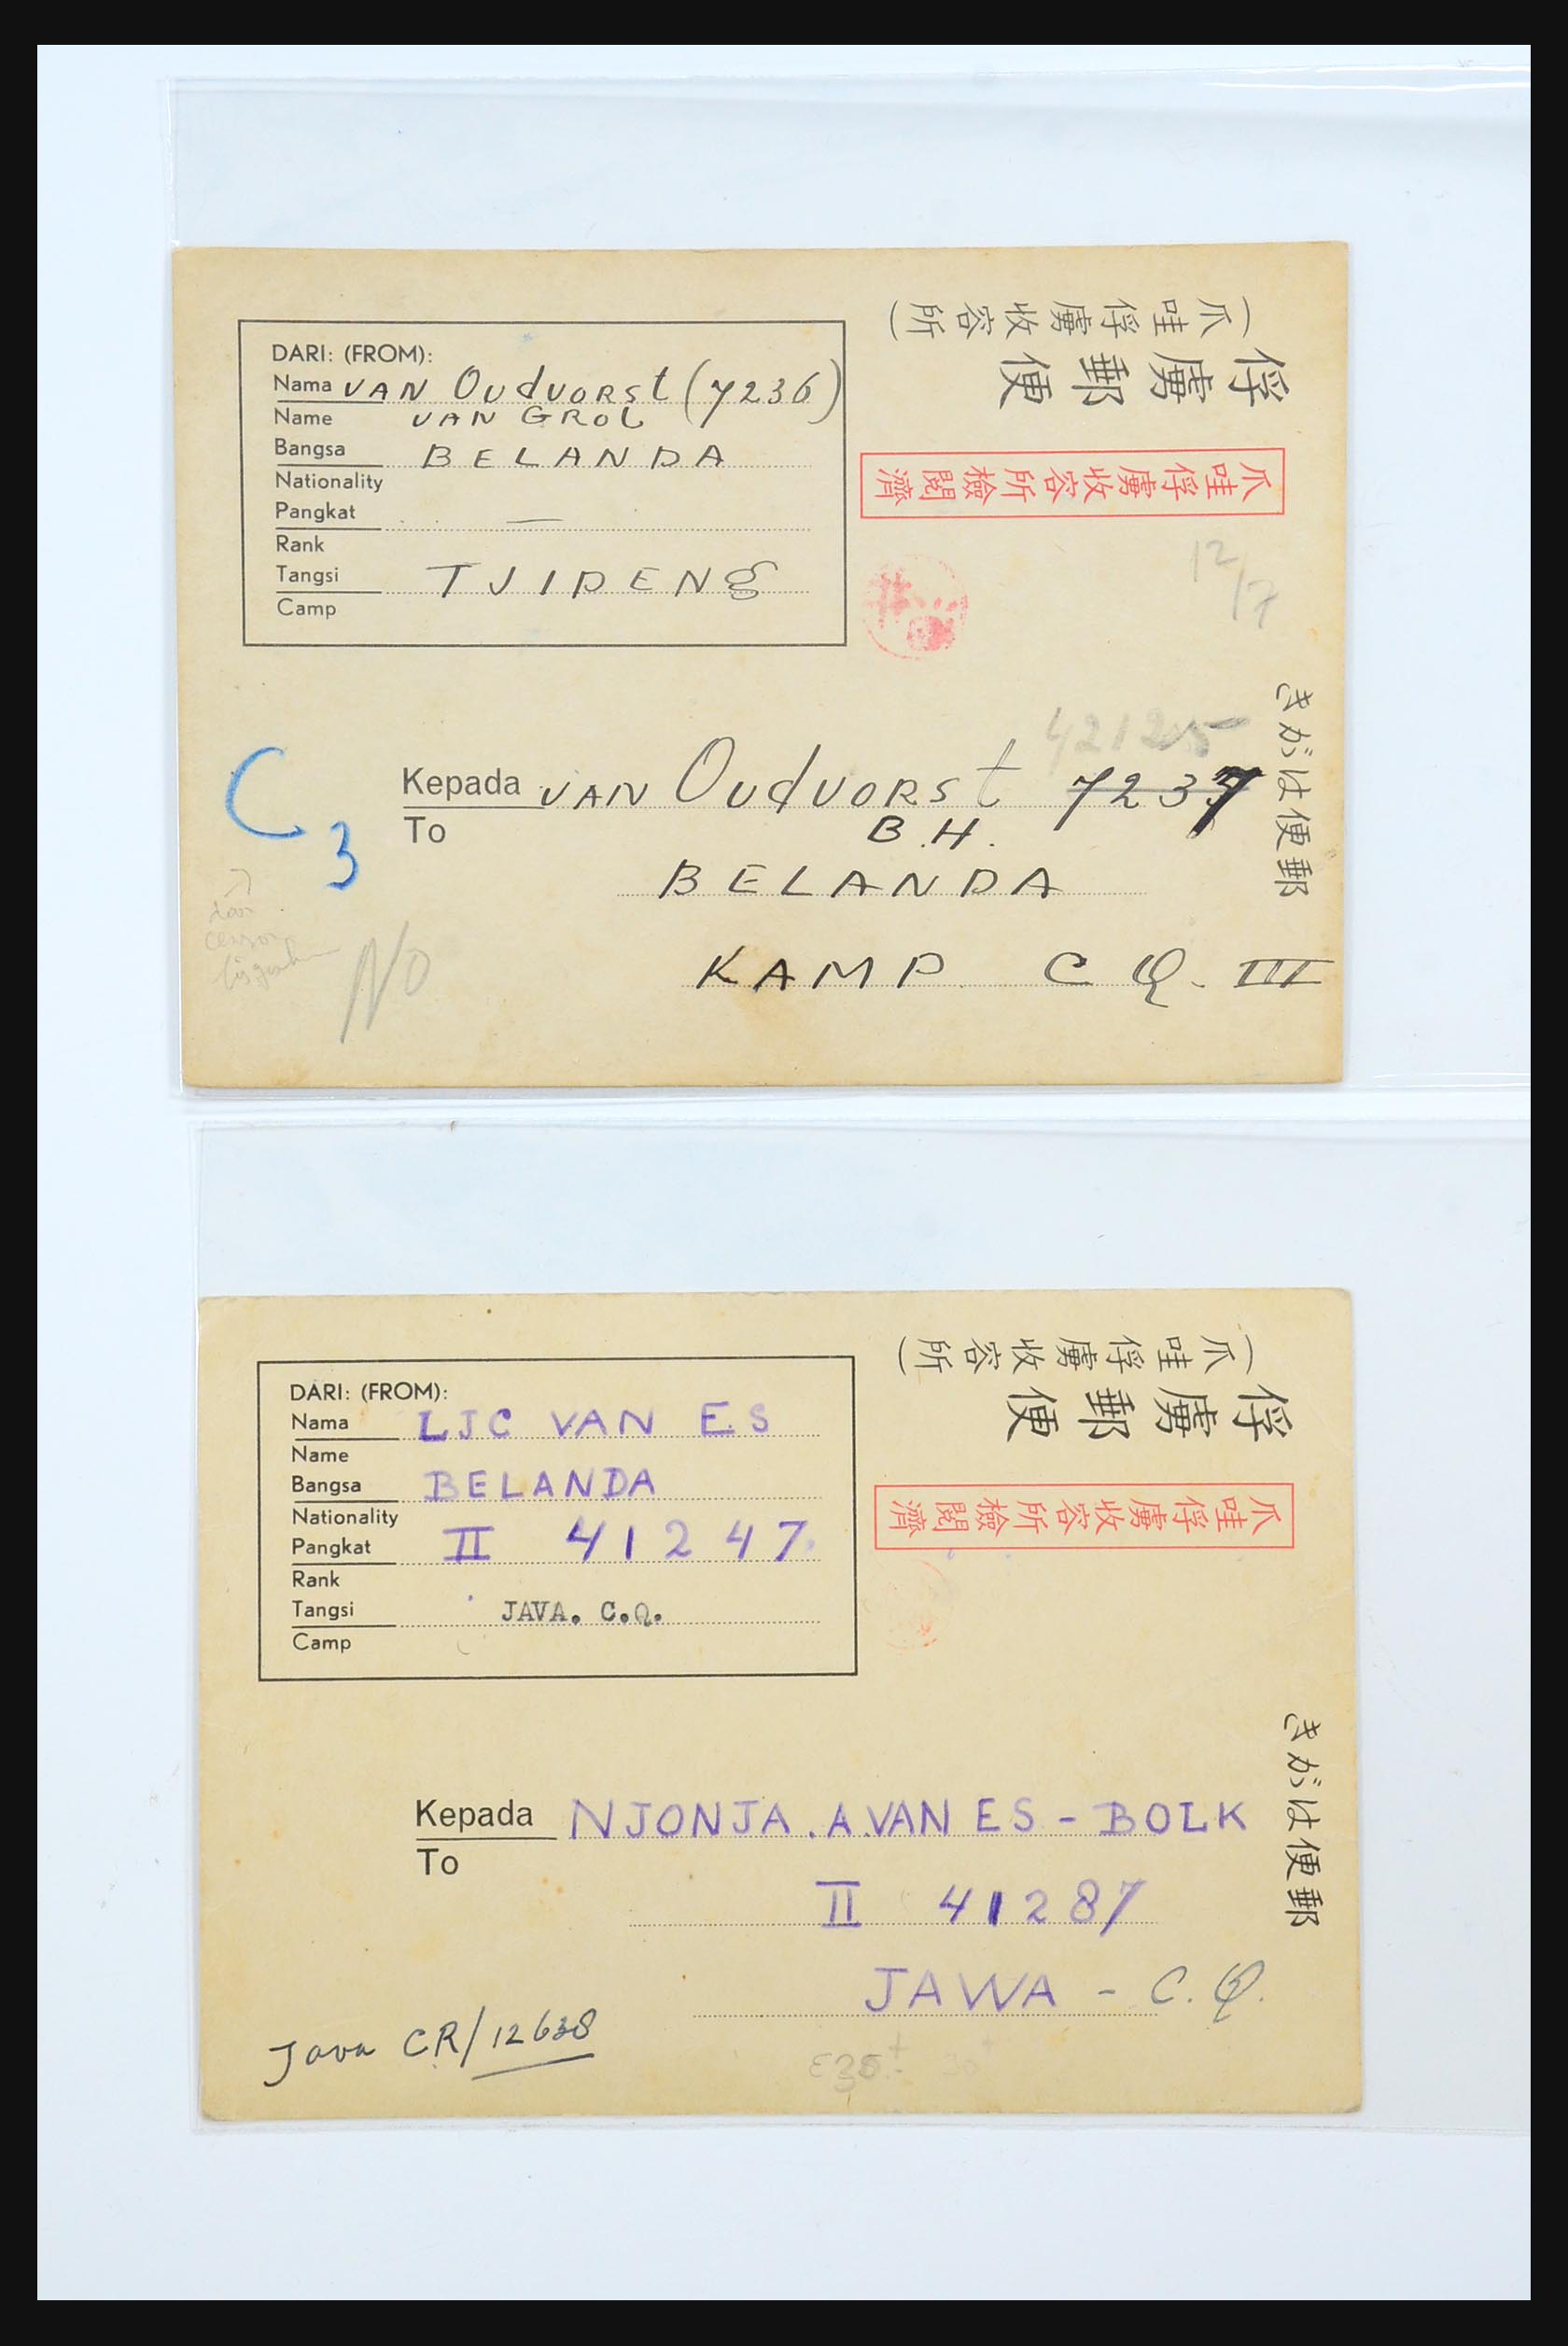 DARI: (FROM):
Nama VAN OUdVORSt (7236)
Name VAN GROL
Bangsa BELANDA
Nationality
Pangkat —
Rank
Tangsi TJIDENG
Camp
(爪哇俘虜収容所)
俘虜郵便
爪哇俘虜收容所檢閱濟
12/7
郵便はがき
42125
C 3
Kepada VAN OUdVORSt 7237
To
B.H.
BELANDA
KAMP C Q. III
door
censor
No
(爪哇俘虜収容所)
俘虜郵便
爪哇俘虜收容所檢閱濟
DARI: (FROM):
Nama LJC VAN ES
Name
Bangsa BELANDA
Nationality
Pangkat II 41247.
Rank
Tangsi JAVA. C.Q.
Camp
郵便はがき
Kepada NJONJA.A.VAN ES - BOLK
To
II 41287
JAWA - C.Q.
Java CR/12638